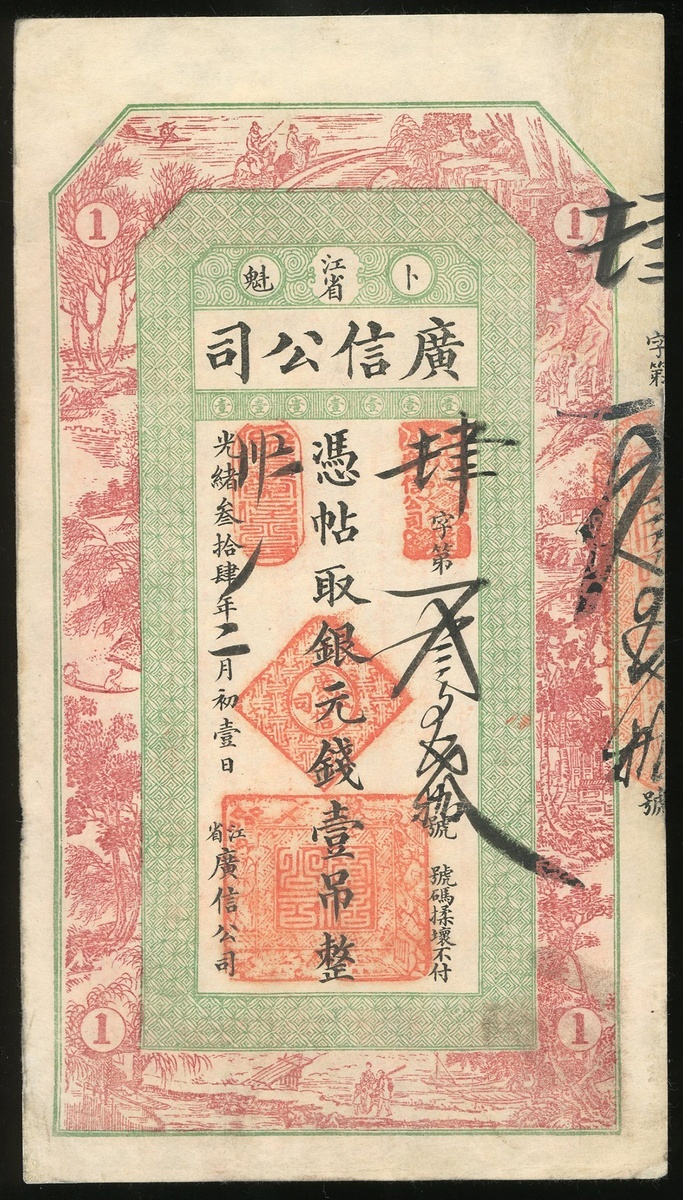 卜 江省 魁
廣信公司
壹 壹 壹 壹 壹 壹 壹
肆字第叁百數拾號
號碼揉壞不付
憑帖取銀元錢壹吊整
光緒叁拾肆年二月初壹日
江省廣信公司
1
1
1
1
字第
號